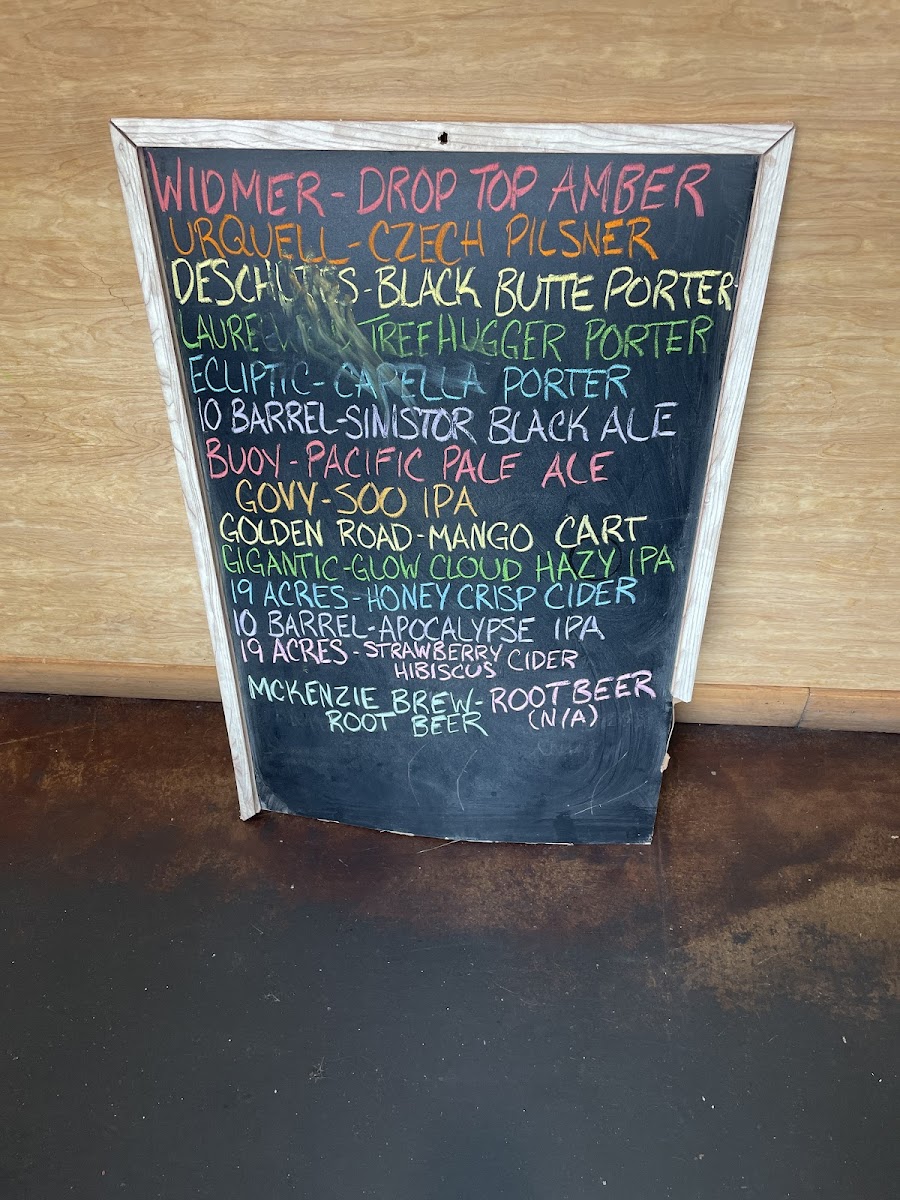 WIDMER-DROP TOP AMBER
URQUELL-CZECH PILSNER
DESCHUTES-BLACK BUTTE PORTER-
TREEHUGGER PORTER
ECLIPTIC-CAPELLA PORTER
10 BARREL-SINISTOR BLACK ALE
BUOY-PACIFIC PALE ALE
GOVY-500 IPA
GOLDEN ROAD-MANGO CART
GIGANTIC-GLOW CLOUD HAZY IPA
19 ACRES-HONEY CRISP CIDER
10 BARREL-APOCALYPSE IPA
19 ACRES-STRAWBERRY CIDER
HIBISCUS
MCKENZIE BREW-ROOT BEER
ROOT BEER (N/A)